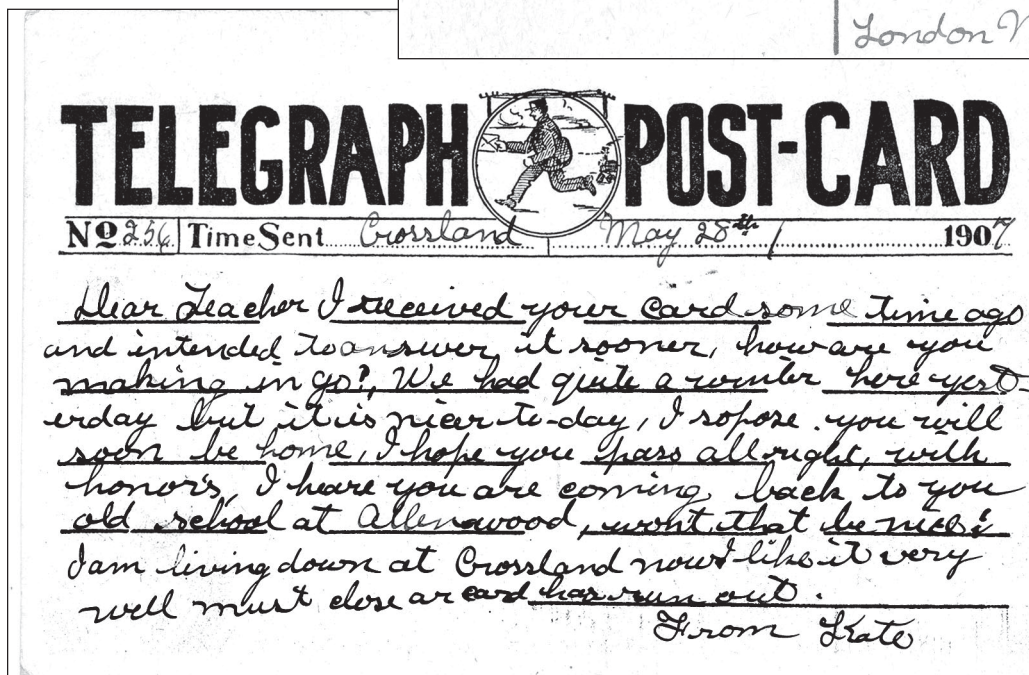 London
TELEGRAPH POST-CARD
No 256 Time Sent Crossland May 28th / 1907
Dear Teacher I received your card some time ago
and intended to answer it sooner, how are you
making in go?, We had quite a winter here yest-
erday but it is nicer to-day, I sopose you will
soon be home, I hope you pass all right, with
honor's, I heare you are coming back to you
old school at Allenwood, wont that be nice!
I am living down at Crossland now I like it very
well must close ar card has run out.
From Kate